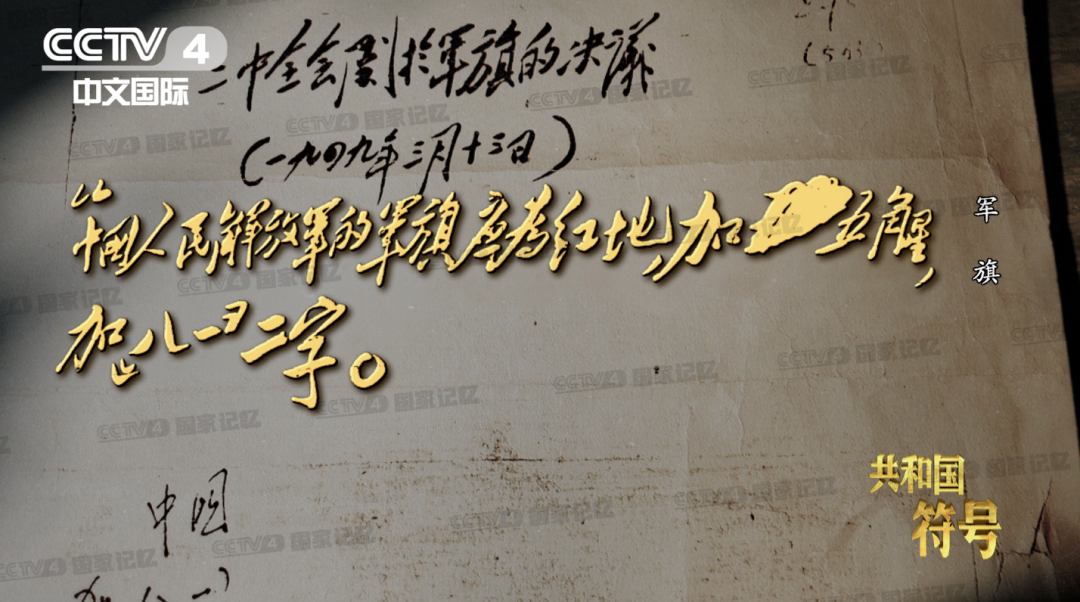 CCTV 4
中文国际
二中全会关于军旗的决议
(一九四九年三月十三日)
中国人民解放军的军旗应为红地,加五角星,
加“八一”二字。
军旗
中国
共和国
符号
CCTV4 国家记忆